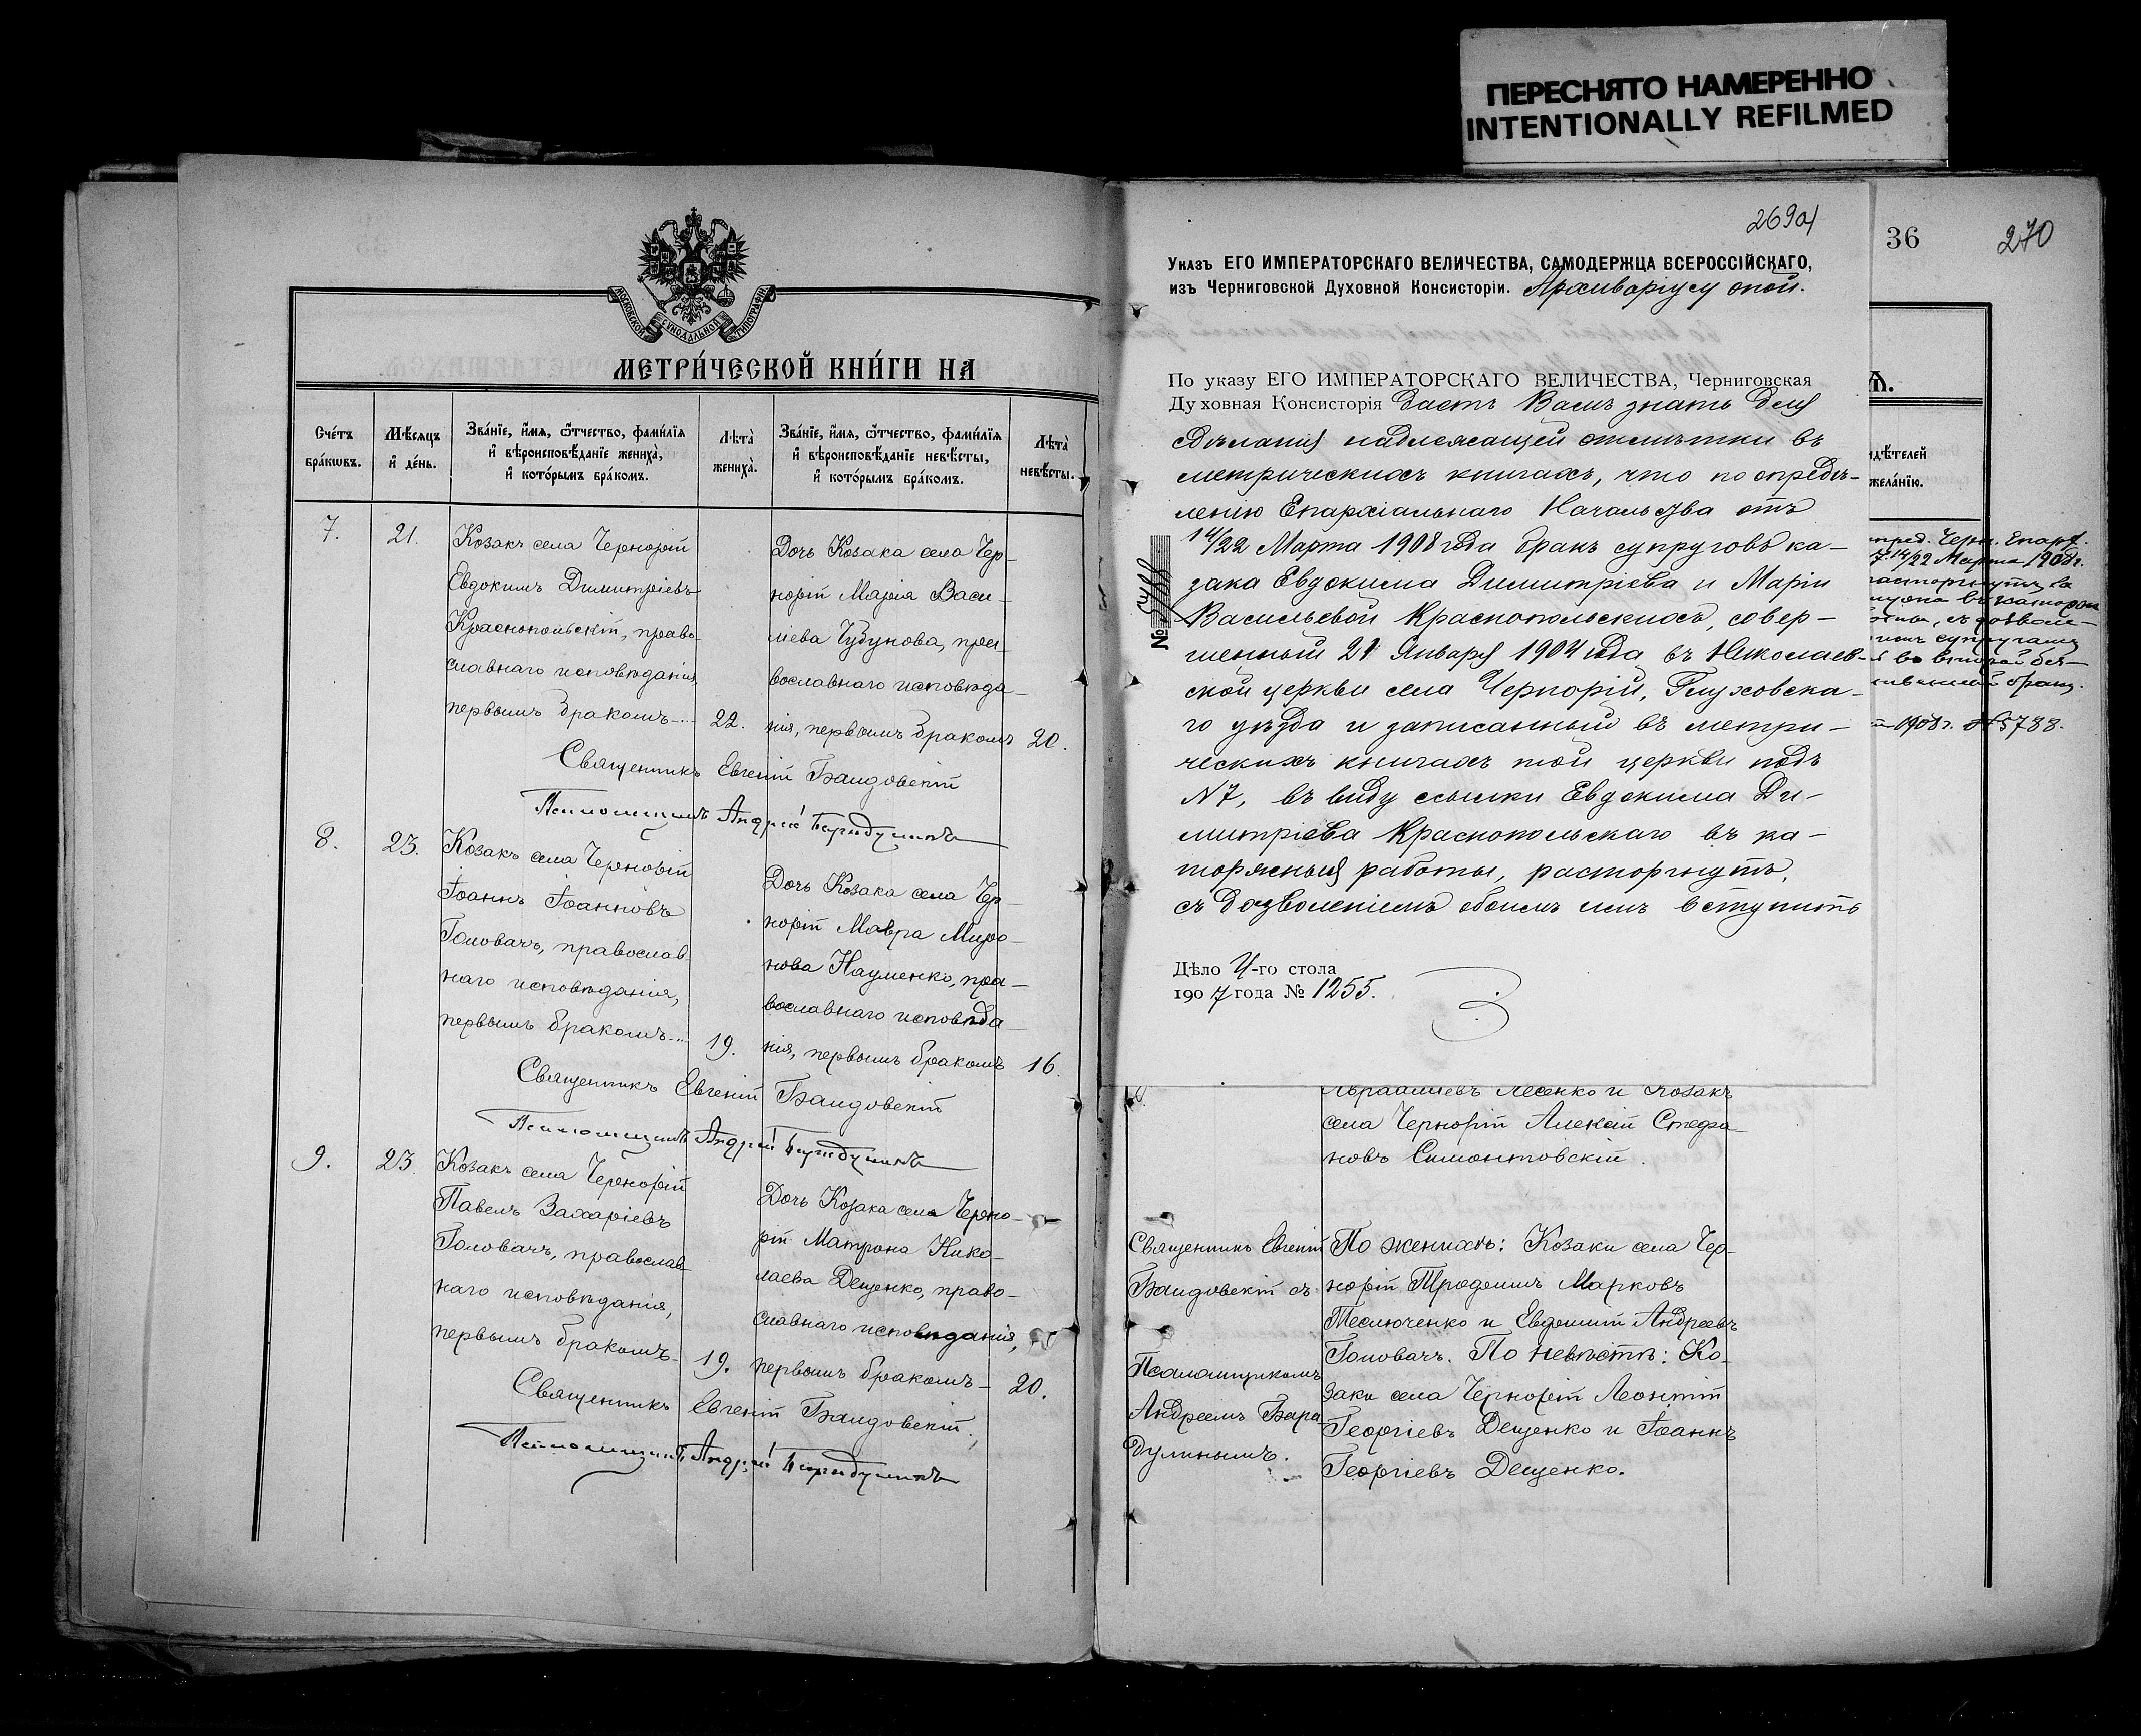 ПЕРЕСНЯТО НАМЕРЕННО
INTENTIONALLY REFILMED
МОСКОВСКОЙ СУНОДАЛЬНОЙ ТИПОГРАФІИ
МЕТРИ́ЧЕСКОЙ КНИ́ГИ НА
Сче́тъ бра́ковъ.
Мѣ́сяцъ и де́нь.
Зва́нїе, и́мя, ѻ҆́тчество, фами́лїя и вѣроисповѣ́данїе жениха̀, и кото́рымъ бра́комъ.
Лѣта̀ жениха̀.
Зва́нїе, и́мя, ѻ҆́тчество, фами́лїя и вѣроисповѣ́данїе невѣ́сты, и кото́рымъ бра́комъ.
Лѣта̀ невѣ́сты.
7.
21.
Козакъ села Чернорій
Евдокимъ Димитріевъ
Краснопольскій, право-
славнаго исповѣданія,
первымъ бракомъ
22.
Дочь Козака села Чер-
норій Марія Васи-
ліева Чубунова, пра-
вославнаго исповѣда-
нія, первымъ бракомъ
20.
Священникъ Евгеній
Псаломщикъ Андрей Барадулинъ
8.
23.
Козакъ села Чернорій
Іоаннъ Іоанновъ
Головачъ, православ-
наго исповѣданія,
первымъ бракомъ
19.
Дочь Козака села Чер-
норій Мавра Миро-
нова Науменко, пра-
вославнаго исповѣда-
нія, первымъ бракомъ
16.
Священникъ Евгеній
Псаломщикъ Андрей Барадулинъ
9.
23.
Козакъ села Чернорій
Павелъ Захаріевъ
Головачъ, православ-
наго исповѣданія,
первымъ бракомъ-
19.
Дочь Козака села Черно-
рій Матрона Нико-
лаева Дещенко, право-
славнаго исповѣданія,
первымъ бракомъ-
20.
Священникъ Евгеній
Псаломщикъ Андрей Барадулинъ
269а/
36
270
Указъ ЕГО ИМПЕРАТОРСКАГО ВЕЛИЧЕСТВА, САМОДЕРЖЦА ВСЕРОССІЙСКАГО,
изъ Черниговской Духовной Консисторіи. Архиваріусу оной.
По указу ЕГО ИМПЕРАТОРСКАГО ВЕЛИЧЕСТВА, Черниговская
Духовная Консисторія даетъ Вамъ знать для
сдѣланія надлежащей отмѣтки въ
метрическихъ книгахъ, что по опредѣ-
ленію Епархіальнаго Начальства отъ
14/22 Марта 1908 года бракъ супруговъ ка-
зака Евдокима Димитріева и Маріи
Васильевой Краснопольскихъ, совер-
шенный 21 Января 1904 года въ Николаев-
ской церкви села Чернорій, Глуховска-
го уѣзда и записанный въ метри-
ческихъ книгахъ той церкви подъ
N7, въ виду ссылки Евдокима Ди-
митріева Краснопольскаго въ ка-
торжныя работы, расторгнутъ,
съ дозволеніемъ обоимъ имъ вступить
№ 5788
Дѣло 4-го стола
1907 года № 1255.
ѧ.
идѣ́телей
жела́нїю.
пред. Черн. Епарх.
14/22 Марта 1908г.
расторгнутъ за
въ каторж
съ дозволе-
супругамъ
во второй
бракъ.
1908г. N5788.
Авраамиевъ Лесенко и Козакъ
села Чернорій Алексій Стефа-
новъ Симонтовскій.
Священникъ Евгеній
съ
Псаломщикомъ
Андреемъ Бара-
дулинымъ.
По женихѣ: Козаки села Чер-
норій Трофимъ Марковъ
Теслюченко и Евфимій Андреевъ
Головачъ. По невѣстѣ: Ко-
заки села Чернорій Леонтій
Георгіевъ Дещенко и Іоаннъ
Георгіевъ Дещенко.